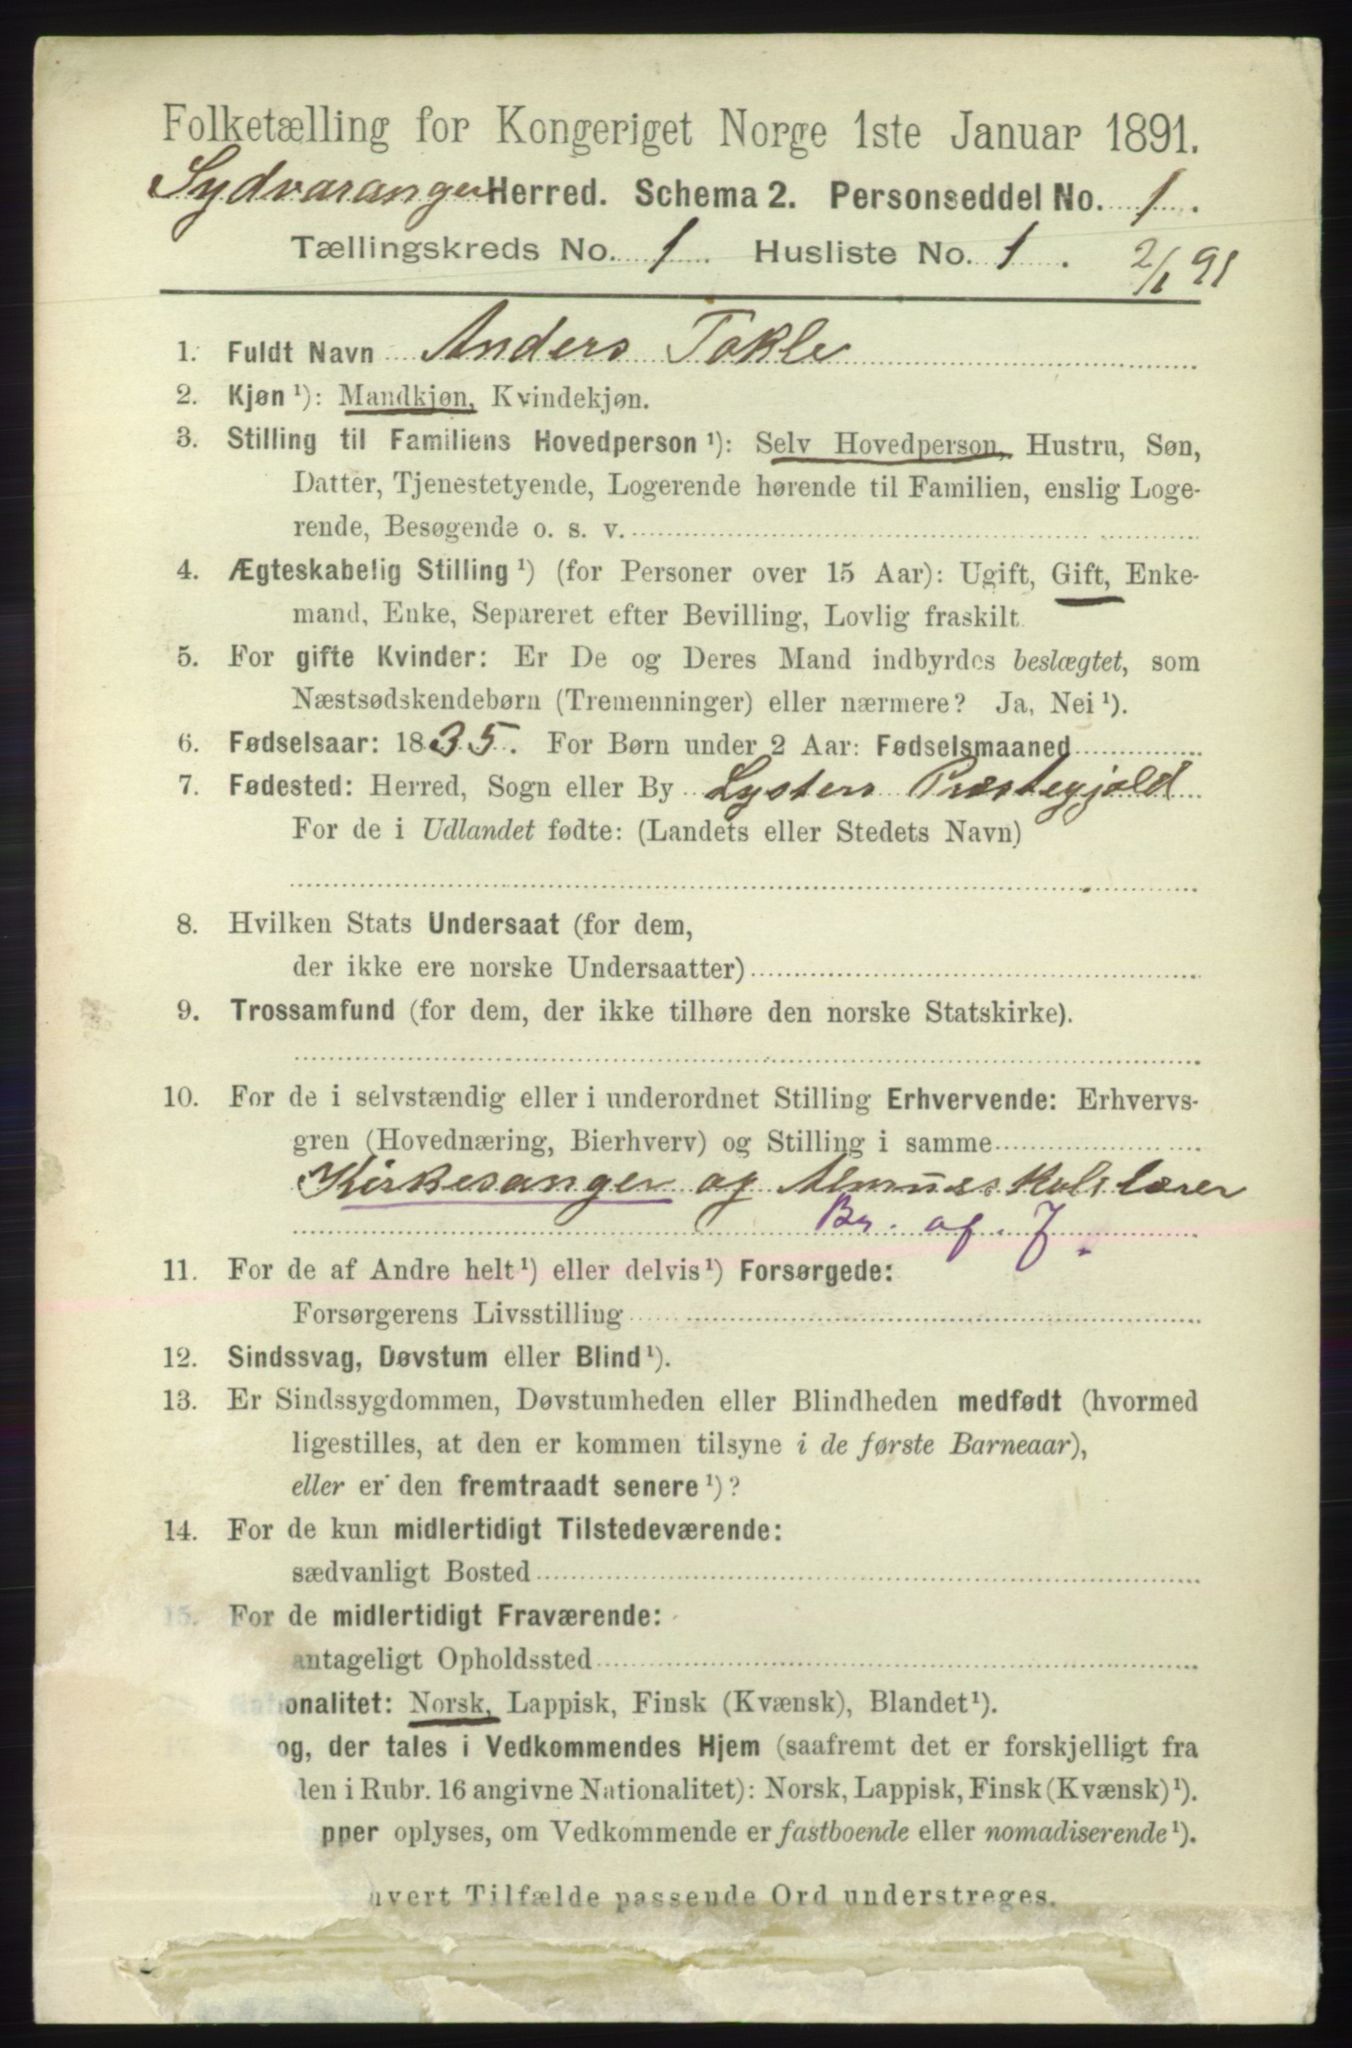 Folketælling for Kongeriget Norge 1ste Januar 1891.
Sydvaranger Herred. Schema 2. Personseddel No. 1.
Tællingskreds No. 1 Husliste No. 1. 2/1 91
1. Fuldt Navn Anders Tokle
2. Kjøn ¹): Mandkjøn, Kvindekjøn.
3. Stilling til Familiens Hovedperson ¹): Selv Hovedperson, Hustru, Søn,
Datter, Tjenestetyende, Logerende hørende til Familien, enslig Loge-
rende, Besøgende o. s. v.
4. Ægteskabelig Stilling ¹) (for Personer over 15 Aar): Ugift, Gift, Enke-
mand, Enke, Separeret efter Bevilling, Lovlig fraskilt.
5. For gifte Kvinder: Er De og Deres Mand indbyrdes beslægtet, som
Næstsødskendebørn (Tremenninger) eller nærmere? Ja, Nei ¹).
6. Fødselsaar: 1835. For Børn under 2 Aar: Fødselsmaaned
7. Fødested: Herred, Sogn eller By Lysters Præstegjeld
For de i Udlandet fødte: (Landets eller Stedets Navn)
8. Hvilken Stats Undersaat (for dem,
der ikke ere norske Undersaatter)
9. Trossamfund (for dem, der ikke tilhøre den norske Statskirke).
10. For de i selvstændig eller i underordnet Stilling Erhvervende: Erhvervs-
gren (Hovednæring, Bierhverv) og Stilling i samme
Kirkesanger og Almueskolelærer
Br. af. J.
11. For de af Andre helt ¹) eller delvis ¹) Forsørgede:
Forsørgerens Livsstilling
12. Sindssvag, Døvstum eller Blind ¹).
13. Er Sindssygdommen, Døvstumheden eller Blindheden medfødt (hvormed
ligestilles, at den er kommen tilsyne i de første Barneaar),
eller er den fremtraadt senere ¹)?
14. For de kun midlertidigt Tilstedeværende:
sædvanligt Bosted
15. For de midlertidigt Fraværende:
antageligt Opholdssted
onalitet: Norsk, Lappisk, Finsk (Kvænsk), Blandet ¹).
og, der tales i Vedkommendes Hjem (saafremt det er forskjelligt fra
den i Rubr. 16 angivne Nationalitet): Norsk, Lappisk, Finsk (Kvænsk) ¹).
pper oplyses, om Vedkommende er fastboende eller nomadiserende ¹).
hvert Tilfælde passende Ord understreges.